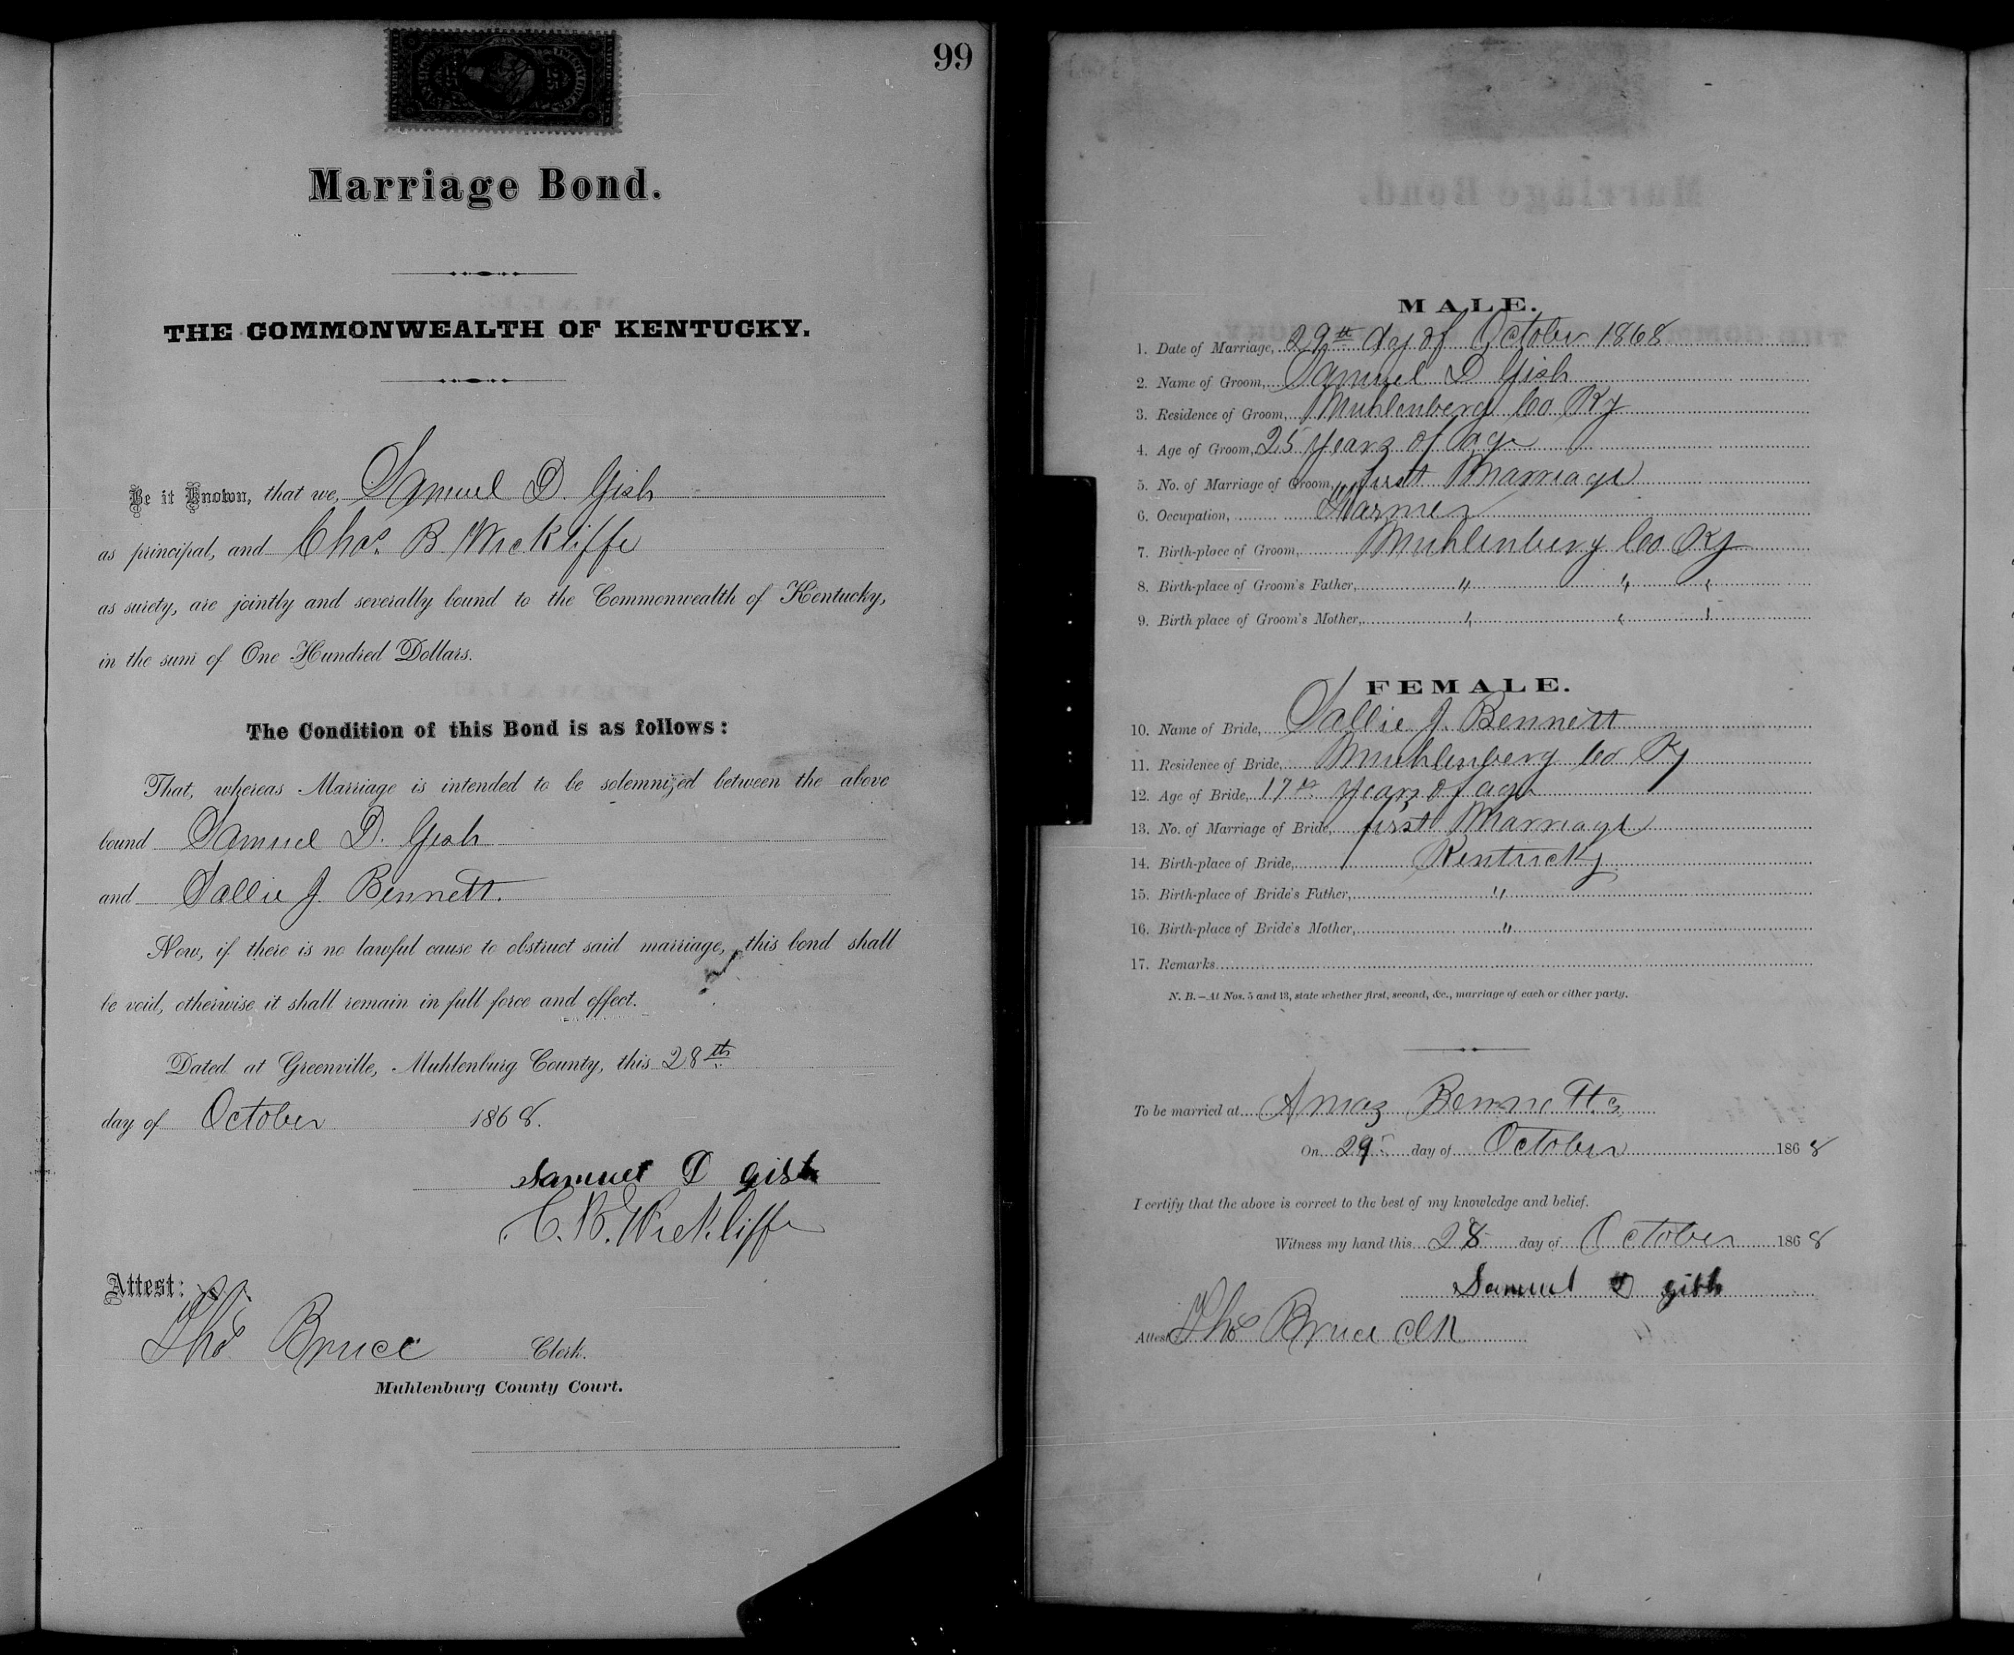 99
Marriage Bond.
THE COMMONWEALTH OF KENTUCKY.
Be it Known, that we, Samuel D. Gish
as principal, and Chas. B. Wickliffe
as surety, are jointly and severally bound to the Commonwealth of Kentucky,
in the sum of One Hundred Dollars.
The Condition of this Bond is as follows:
That, whereas Marriage is intended to be solemnized between the above
bound Samuel D. Gish
and Sallie J. Bennett.
Now, if there is no lawful cause to obstruct said marriage, this bond shall
be void, otherwise it shall remain in full force and effect.
Dated at Greenville, Muhlenburg County, this 28th
day of October 1868.
Samuel D gish
C. B. Wickliffe
Attest:
Thos Bruce Clerk.
Muhlenburg County Court.
MALE.
1. Date of Marriage, 29th day of October 1868
2. Name of Groom, Samuel D Gish
3. Residence of Groom, Muhlenberg Co Ky
4. Age of Groom, 25 years of age
5. No. of Marriage of Groom, first Marriage
6. Occupation, Farmer
7. Birth-place of Groom, Muhlenberg Co Ky
8. Birth-place of Groom's Father, " " "
9. Birth place of Groom's Mother, " " "
FEMALE.
10. Name of Bride, Sallie J. Bennett
11. Residence of Bride, Muhlenberg Co Ky
12. Age of Bride, 17 years of age
13. No. of Marriage of Bride, first Marriage
14. Birth-place of Bride, Kentucky
15. Birth-place of Bride's Father, "
16. Birth-place of Bride's Mother, "
17. Remarks
N. B.—At Nos. 5 and 13, state whether first, second, &c., marriage of each or either party.
To be married at Amaz Bennetts
On 29 day of October 1868
I certify that the above is correct to the best of my knowledge and belief.
Witness my hand this 28 day of October 1868
Samuel D gish
Attest Thos Bruce Clk